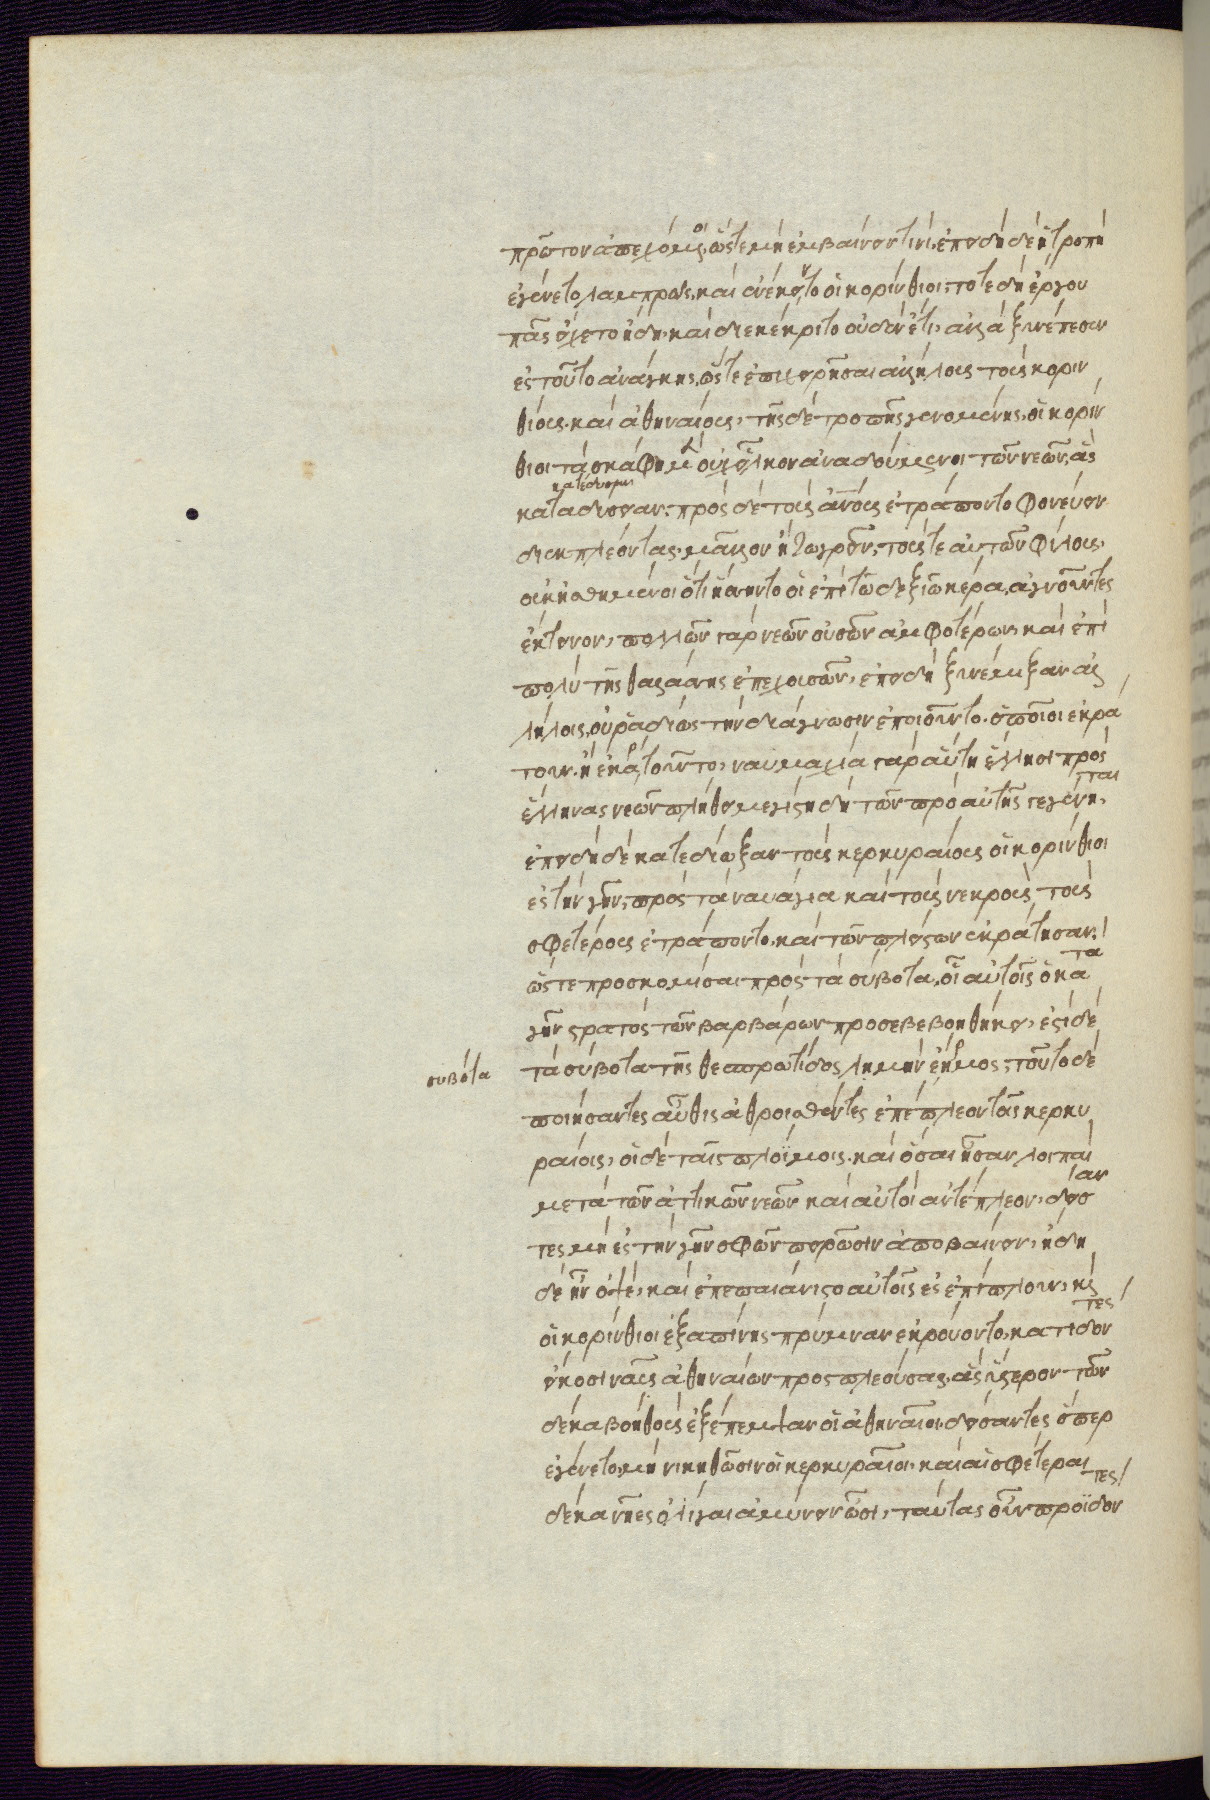 πρῶτον ἀπεχόμενοι, ὥστε μὴ ἐμβαίνειν τινί. ἐπειδὴ δὲ ἡ τροπὴ
ἐγένετο λαμπρῶς, καὶ ἐνέκειντο οἱ κορίνθιοι, τότε δὴ ἔργου
πᾶς εἴχετο ἤδη. καὶ διεκέκριτο οὐδὲν ἔτι, ἀλλὰ ξυνέπεσεν
ἐς τοῦτο ἀνάγκης, ὥστε ἐπιχειρῆσαι ἀλλήλοις τοὺς κοριν
θίους καὶ ἀθηναίους, τῆς δὲ τροπῆς γενομένης, οἱ κορίν
θιοι τὰ σκάφη μὲν οὐχ εἷλκον ἀναδούμενοι τῶν νεῶν, ἃς
καταδύσειαν
κατέδυσαν, πρὸς δὲ τοὺς ἀνθρώπους ἐτράποντο φονεύειν
διεκπλέοντας, μᾶλλον ἢ ζωγρεῖν, τούς τε αὑτῶν φίλους,
οὐκ ᾐσθημένοι ὅτι ἥσσηντο οἱ ἐπὶ τῷ δεξιῷ κέρᾳ, ἀγνοοῦντες
ἔκτεινον, πολλῶν γὰρ νεῶν οὐσῶν ἀμφοτέρων, καὶ ἐπὶ
πολὺ τῆς θαλάσσης ἐπεχουσῶν, ἐπειδὴ ξυνέμιξαν ἀλ
λήλοις, οὐ ῥᾳδίως τὴν διάγνωσιν ἐποιοῦντο, ὁποῖοι ἐκρά
τουν, ἢ ἐκρατοῦντο, ναυμαχία γὰρ αὕτη ἕλλησι πρὸς
ἕλληνας νεῶν πλήθει μεγίστη δὴ τῶν πρὸ αὐτῆς γεγένηται,
ἐπειδὴ δὲ κατεδίωξαν τοὺς κερκυραίους οἱ κορίνθιοι
ἐς τὴν γῆν, πρὸς τὰ ναυάγια καὶ τοὺς νεκροὺς τοὺς
σφετέρους ἐτράποντο, καὶ τῶν πλείστων ἐκράτησαν,
ὥστε προσκομίσαι πρὸς τὰ σύβοτα, οἷ αὐτοῖς ὁ κατὰ
γῆν στρατὸς τῶν βαρβάρων προσεβεβοηθήκει, ἔστι δὲ
συβότα
τὰ σύβοτα τῆς θεσπρωτίδος λιμὴν ἐρῆμος, τοῦτο δὲ
ποιήσαντες αὖθις ἀθροισθέντες ἐπέπλεον τοῖς κερκυ
ραίοις, οἱ δὲ ταῖς πλοΐμοις, καὶ ὅσαι ἦσαν λοιπαὶ
μετὰ τῶν ἀττικῶν νεῶν καὶ αὐτοὶ ἀντέπλεον, δείσαν
τες μὴ ἐς τὴν γῆν σφῶν πειρῶσιν ἀποβαίνειν, ἤδη
δὲ ἦν ὀψέ, καὶ ἐπεπαιάνιστο αὐτοῖς ἐς ἐπίπλουν, καὶ
οἱ κορίνθιοι ἐξαπίνης πρύμναν ἐκρούοντο, κατιδόντες
εἴκοσι ναῦς ἀθηναίων προσπλεούσας, ἃς ὕστερον τῶν
δέκα βοηθοὺς ἐξέπεμψαν οἱ ἀθηναῖοι, δείσαντες ὅπερ
ἐγένετο, μὴ νικηθῶσιν οἱ κερκυραῖοι, καὶ αἱ σφέτεραι
δέκα νῆες ὀλίγαι ἀμύνειν ὦσι, ταύτας οὖν προϊδόντες